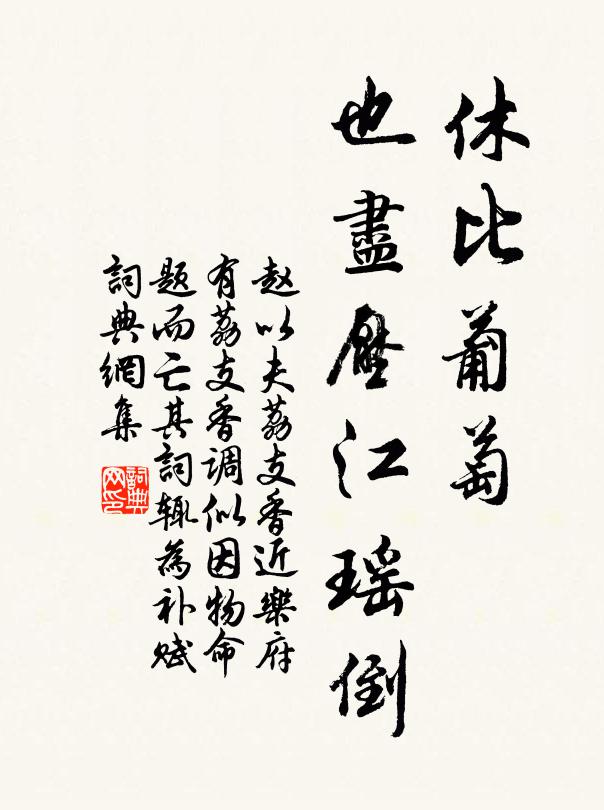 休比葡萄
也盡壓江瑶倒
赵以夫荔支香近樂府
有荔支香调似因物命
题而亡其詞辄為补赋
詞典網集
詞典网印